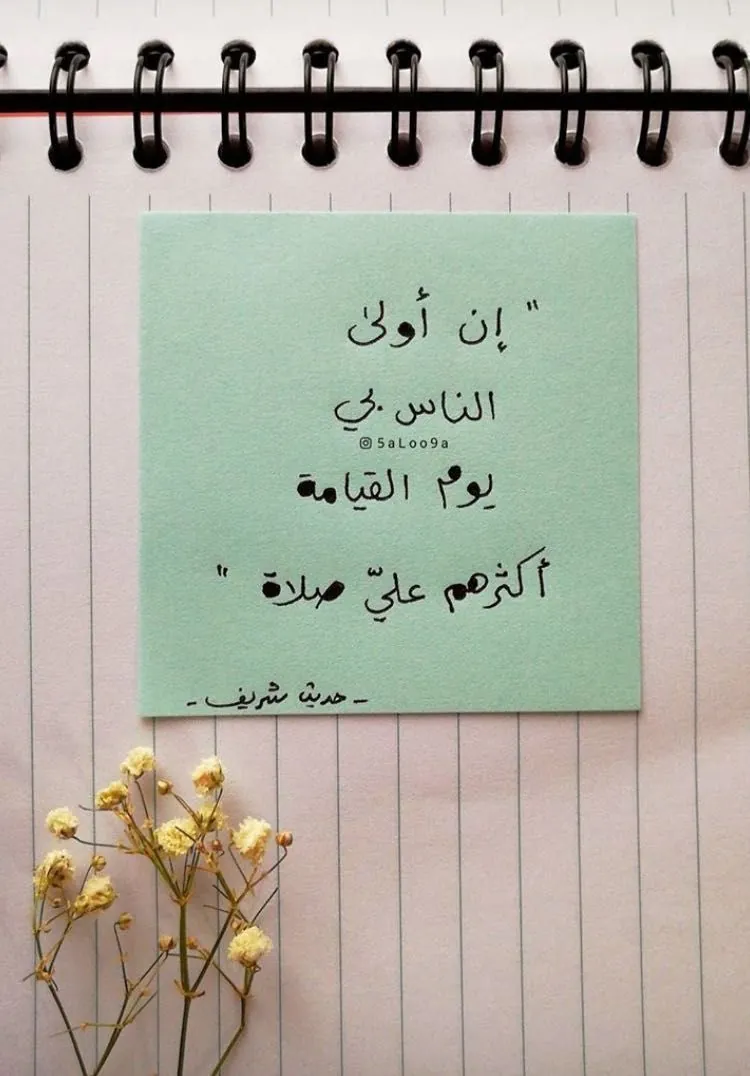 " إن أولىٰ
الناس بي
5aLoo9a
يوم القيامة
أكثرهم عليّ صلاة "
- حديث شريف -